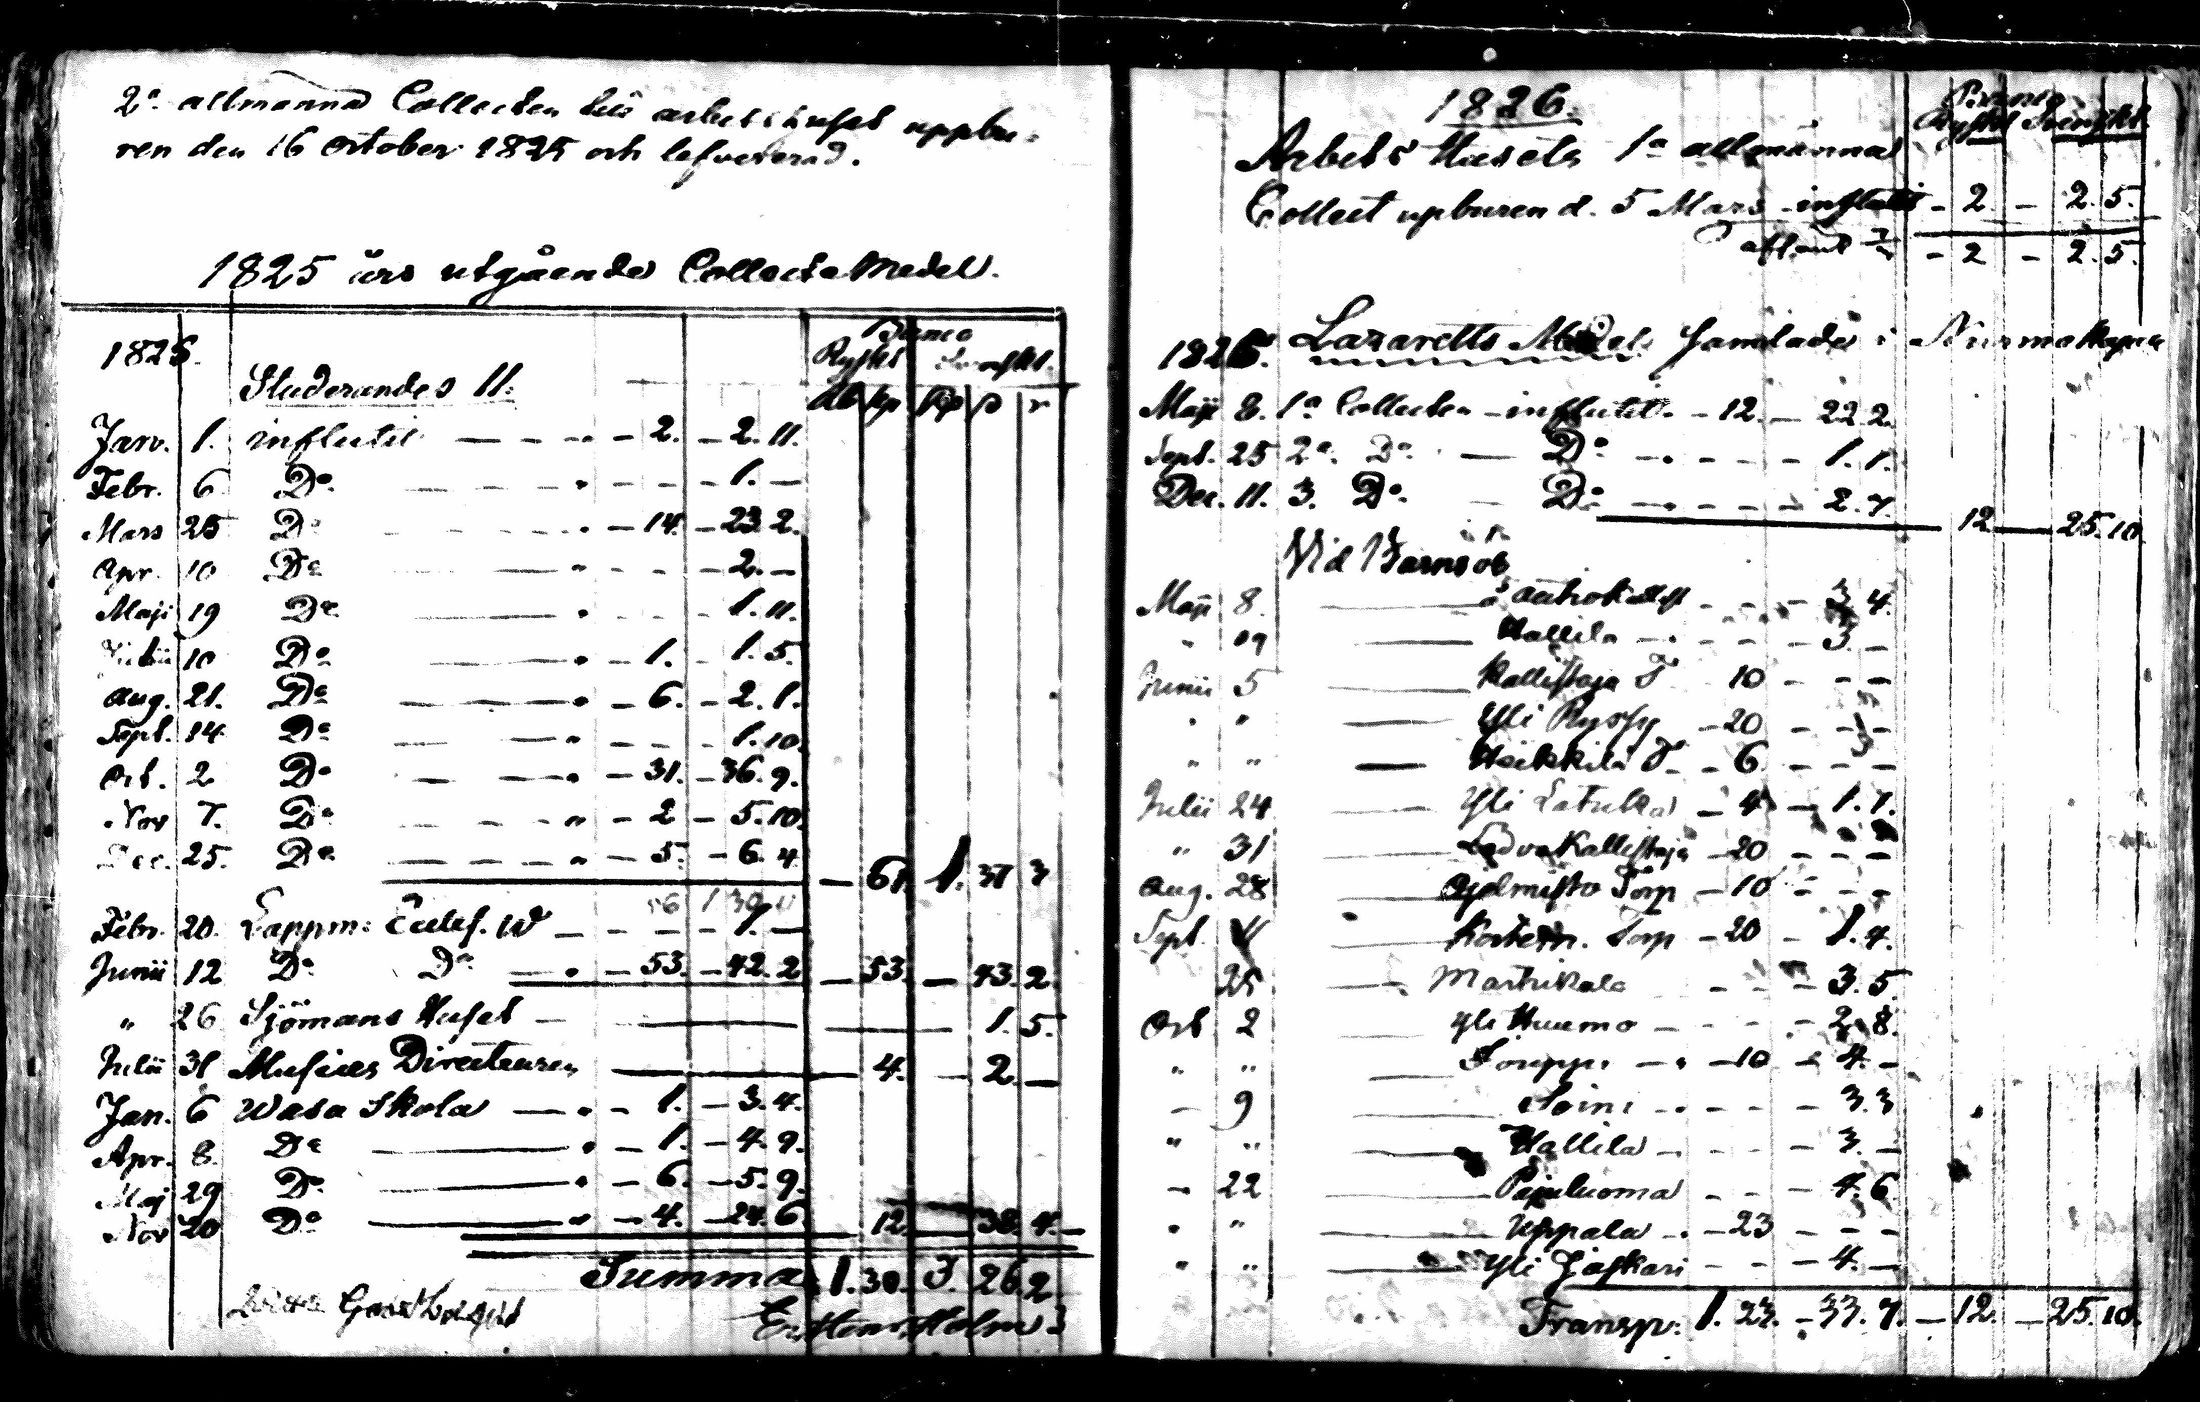 2a allmänna Collecten till arbetshuset uppbu-
ren den 16 october 1825 och lefvererad.
1825 års utgående Collecte Medel.
1825. Banco
Ryskt Svenskt.
Studerandes 11. Rb kp Rd s r
Janv. 1. influtit — — — 2. — 2. 11.
Febr. 6 Do — — — 1. —
Mars 25 Do — 14. — 23. 2.
Apr. 10 Do — — — 2. —
Maji 19 Do — — — 1. 11.
10 Do — 1. — 1. 5.
Aug. 21. Do — 6. — 2. 1.
Sept. 14 Do — — — 1. 10.
Oct. 2 Do — 31. — 36. 9.
Nov 7. Do — 2 — 5. 10.
Dec. 25. Do — 5. — 6. 4. — 61. 1. 37 3
Febr. 20. Lappm: — — — 1. —
Junii 12 Do Do — 53. — 42. 2 — 53. — 43. 2.
" 26 Sjömans Huset — — — 1. 5.
Julii 31 Musices Directeuren — 4. — 2. —
Jan. 6 Wasa Skola — 1. — 3. 4.
Apr. 8. Do — 1. — 4. 9.
Maj 29 Do — 6. — 5. 9.
Nov 20 Do — 4. — 24. 6. 12. 38. 4.
Summa 1. 30. 3. 26. 2.
1826.
Banco
Ryskt Svenskt.
Arbets Husets 1a allmänna
Collect upburen d. 5 Mars influtit — 2 — 2. 5.
— 2 — 2. 5.
1826. Lazaretts Medel samlade i Nurmo Kapell
Maji 8. 1a Collecten — influtit — 12. — 22. 2.
Sept. 25 2a. Do — Do — — — 1. 1.
Dec. 11. 3. Do — Do — — — 2. 7. 12 — 25. 10.
Vid Barnsöl
Maji 8. — — — 3 4.
" 19 Hallila — — — 3. —
Junii 5 Kallistaja T 10 — — —
" " Yli Ryssy — 20 — — —
" " Heikkilä T — 6 — — —
Julii 24 Yli Latuka — 4 — 1. 1.
" 31 Ladvakallistaja — 20 — — —
Aug. 28 Torp — 10 — — —
Sept. Torp — 20 — 1. 4.
25 Martikala — — — 3. 5.
Oct 2 Yli Huumo — — — 2. 8.
" " Souppi — 10 — 4. —
— 9 Soini — — — 3. 3
" " Hallila — — — 3. —
— 22 Pajuluoma — — — 4. 6.
" " Uppala — 23 — — —
" " Yli Jaskari — — — 4. —
Transp: 1. 23. — 37. 7. — 12. — 25. 10.